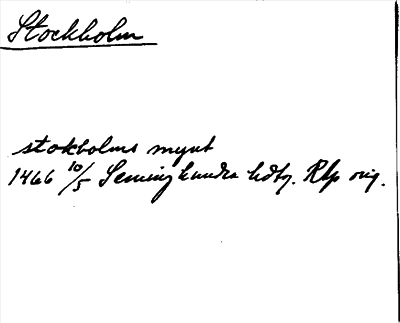 Stockholm
stokholms mynt
1466 10/5 Seminghundra hdtg. Rkp orig.